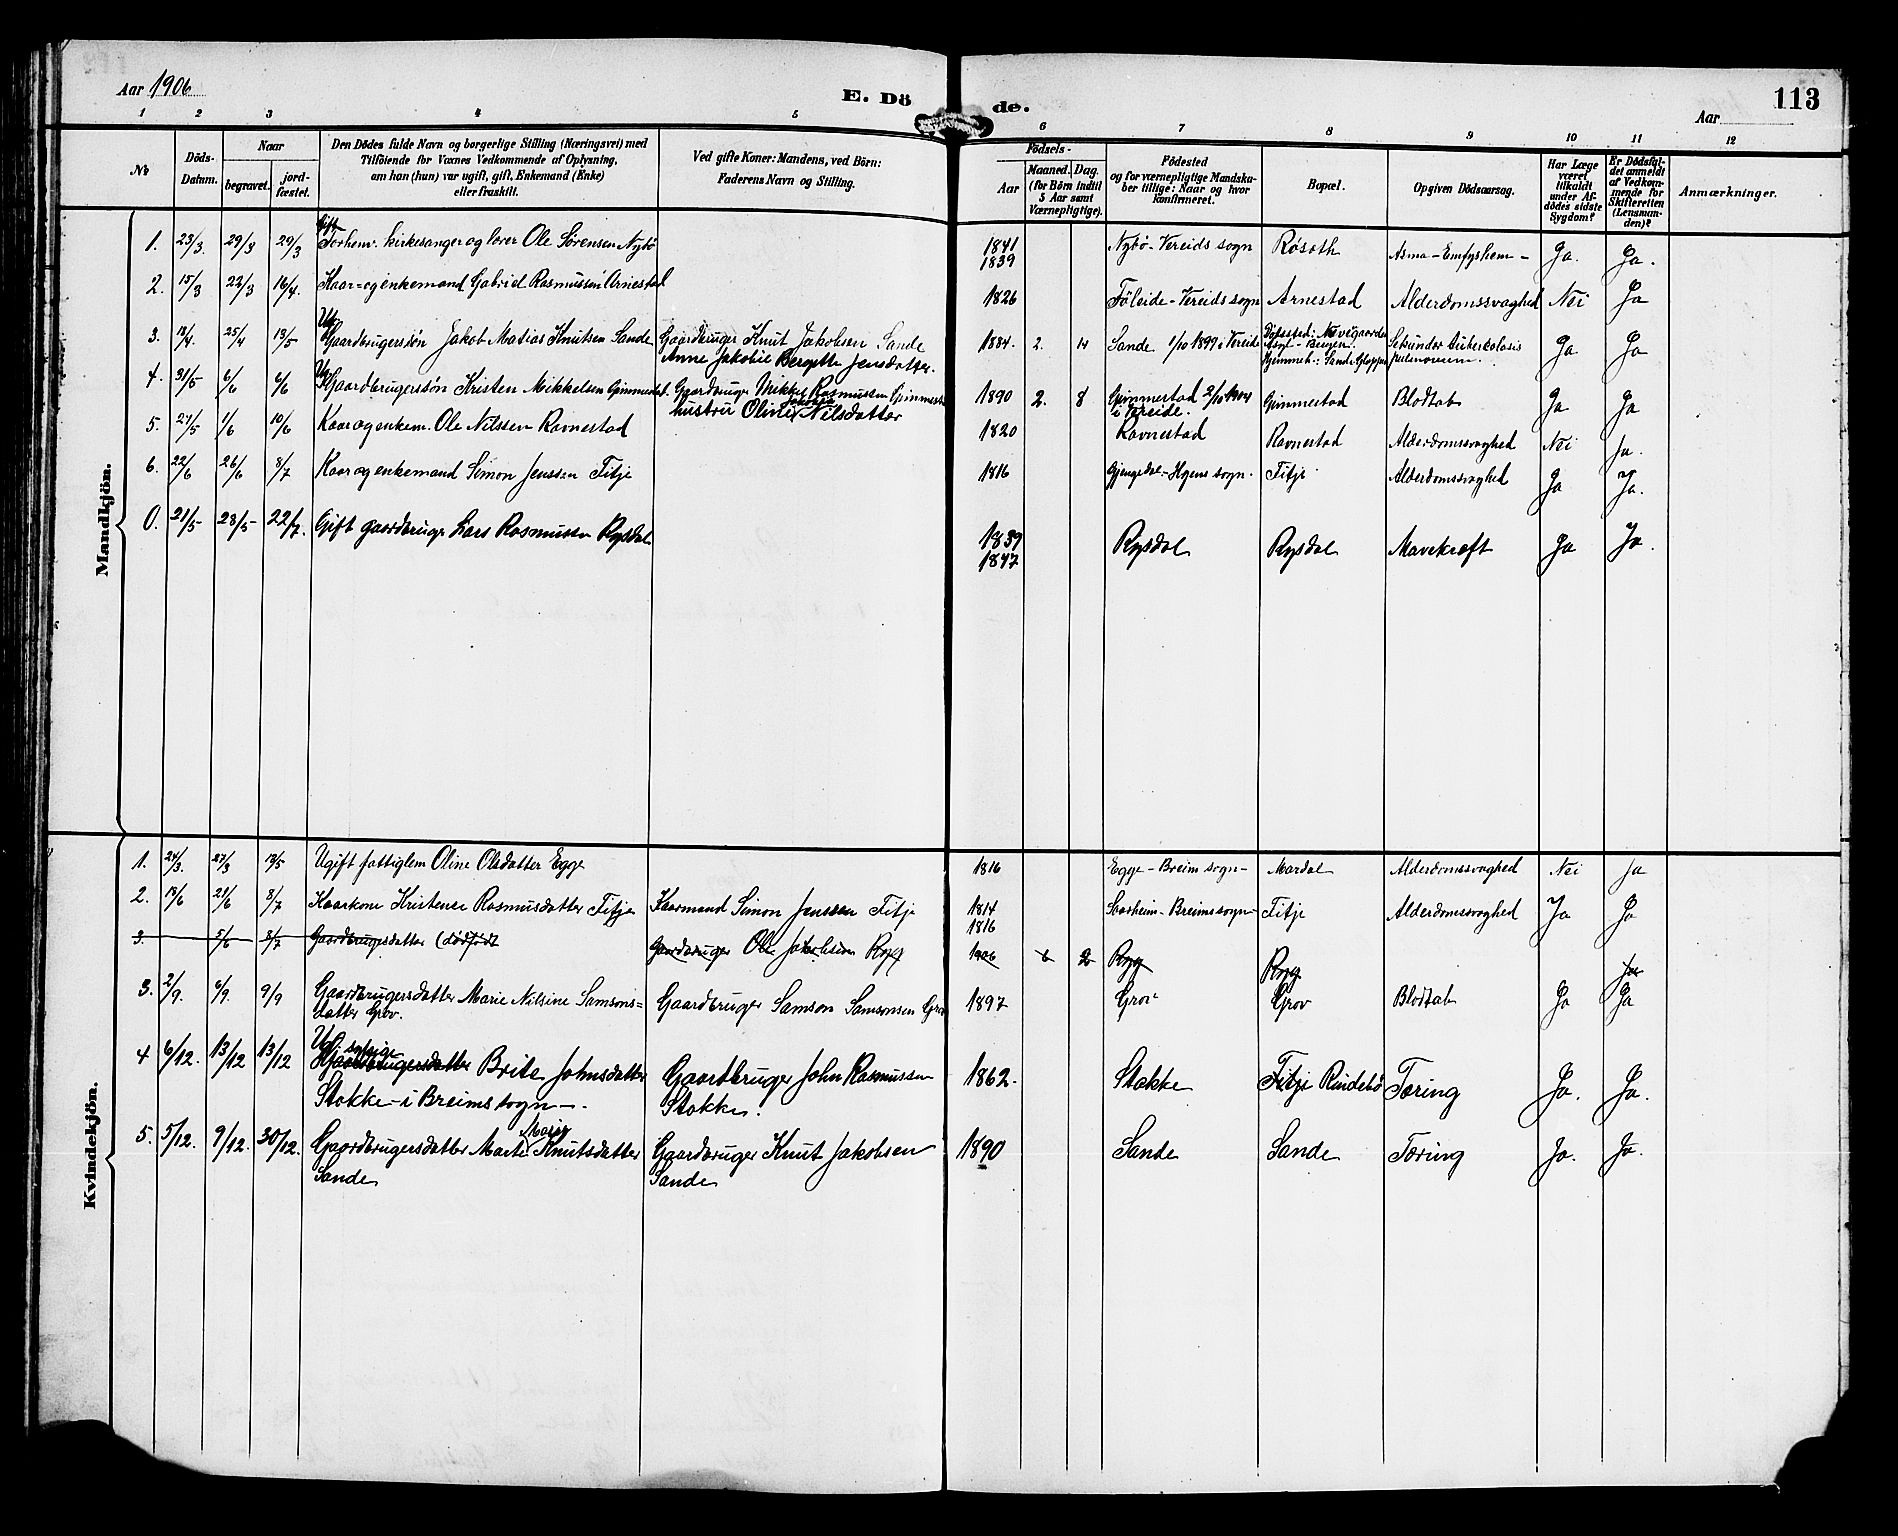 Aar 1906
E. Dö
de.
Aar
113
1 2 3 4 5 6 7 8 9 10 11 12
No
Döds-
Datum.
Naar
begravet.
jord-
fæstet.
Den Dödes fulde Navn og borgerlige Stilling (Næringsvei) med
Tilföiende for Voxnes Vedkommende af Oplysning,
om han (hun) var ugift, gift, Enkemand (Enke)
eller fraskilt.
Ved gifte Koner: Mandens, ved Börn:
Faderens Navn og Stilling.
Födsels-
Aar
Maaned. Dag.
(for Börn indtil
5 Aar samt
Værnepligtige).
Födested
og for værnepligtige Mandska-
ber tillige: Naar og hvor
konfirmeret.
Bopæl.
Opgiven Dödsaarsag.
Har Læge
været
tilkaldt
under Af-
dödes sidste
Sygdom?
Er Dödsfal-
det anmeldt
af Vedkom-
mende for
Skifteretten
(Lensman-
den)?
Anmærkninger.
Mandkjön.
Gift
1. 23/3. 29/3 29/3 Forhenv. kirkesanger og lærer Ole Sørensen Nybø 1841 Nybø - Vereids sogn Røsoth Asma - Emfyshem - Ja. Ja.
1839
2. 15/3 22/3 16/4. Kaar- og enkemand Gabriel Rasmussen Arnestad 1826 Föleide - Vereids sogn Arnestad Alderdomssvaghed Nei Ja
Ug.
3. 18/4. 25/4 13/5 Gaardbrugersøn Jakob Matias Knutsen Sande Gaardbruger Knut Jakobsen Sande 1884. 2. 14 Sande 1/10 1899 i Vereide Dødssted: Nevegaarden Sekundær tuberkolosis Ja Ja
Anne Jakobie Bergitte Jensdatter. Asyl - Bergen.
Hjemmeh.: Sande Gloppen
Ug.
4. 31/5 6/6 6/6 Gaardbrugersøn Kristen Mikkelsen Gimmestad. Gaardbruger Mikkel Rasmussen Gimmestad 1890 2. 8 Gimmestad 2/10 1904 Gimmestad Blodtab Ja Ja
hustru Oline Jakobea Nilsdatter i Vereide.
5. 27/5 1/6 10/6 Kaar og enkem. Ole Nilssen Ravnestad 1820 Ravnestad Ravnestad Alderdomssvaghed Nei Ja.
6. 22/6 26/6 8/7 Kaar og enkemand Simon Jenssen Fitje 1816 Gjengedal - Hyens sogn. Fitje Alderdomssvaghed Ja Ja.
0. 21/5 28/5 22/7. Gift gaardbruger Lars Rasmussen Rysdal 1839 Rysdal Rysdal Mavekræft Ja Ja.
1847
Kvindekjön.
1. 24/3. 27/3 13/5 Ugift fattiglem Oline Olsdatter Egge 1816 Egge - Breim sogn - Mardal Alderdomssvaghed Nei Ja
2. 18/6 21/6 8/7 Kaarkone Kristense Rasmusdatter Fitje Kaarmand Simon Jenssen Fitje 1814 Storheim - Breims sogn - Fitje Alderdomssvaghed Ja Ja
1816
3. 5/6 8/7 Gaardbrugersdatter (dødfødt Gaardbruger Ole Jakobsen Rygg 1906 6 2 Rygg Rygg Ja
3. 2/9. 6/9. 9/9 Gaardbrugersdatter Marie Nilsine Samsons= Gaardbruger Samson Samsonsen Grov 1897 Grov Grov Blodtab Ja Ja
datter Grov.
Ug. sypige
4 6/12. 13/12 13/12 Gaardbrugersdatter Brite Johnsdatter Gaardbruger John Rasmussen 1862. Stokke Fitje Rindebø Tæring Ja. Ja.
Stokke - i Breims sogn -. Stokke.
5. 5/12. 9/12. 30/12. Gaardbrugersdatter Marte Marie Knutsdatter Gaardbruger Knut Jakobsen 1890 Sande Sande Tæring Ja. Ja.
Sande Sande